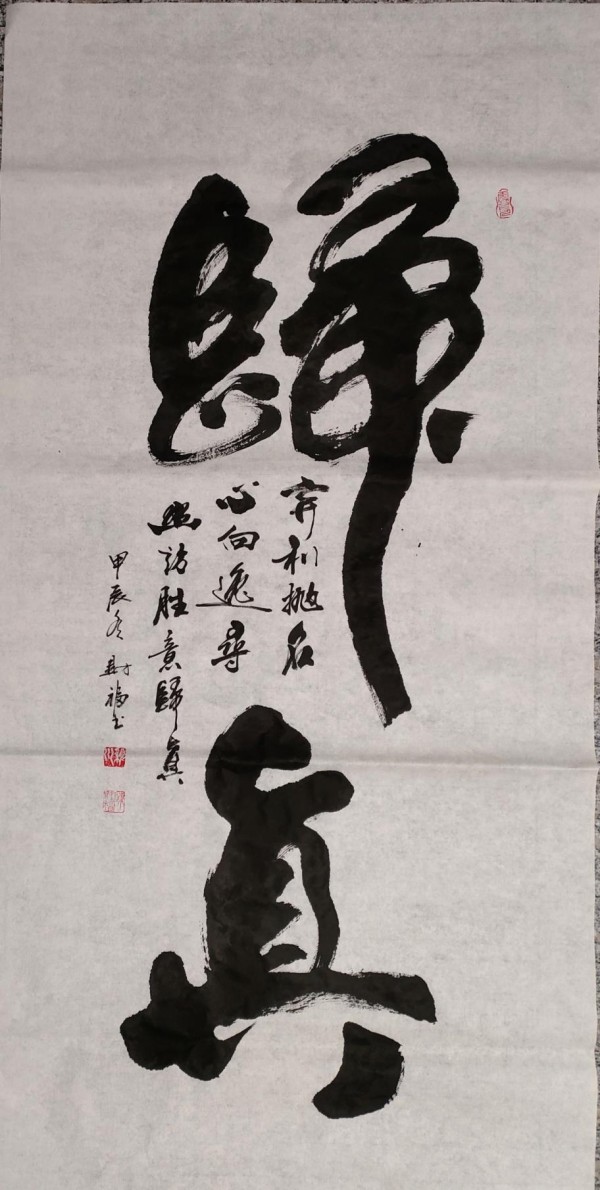 歸真
弃利抛名
心向逸尋
幽訪胜意歸真
甲辰冬 财福书